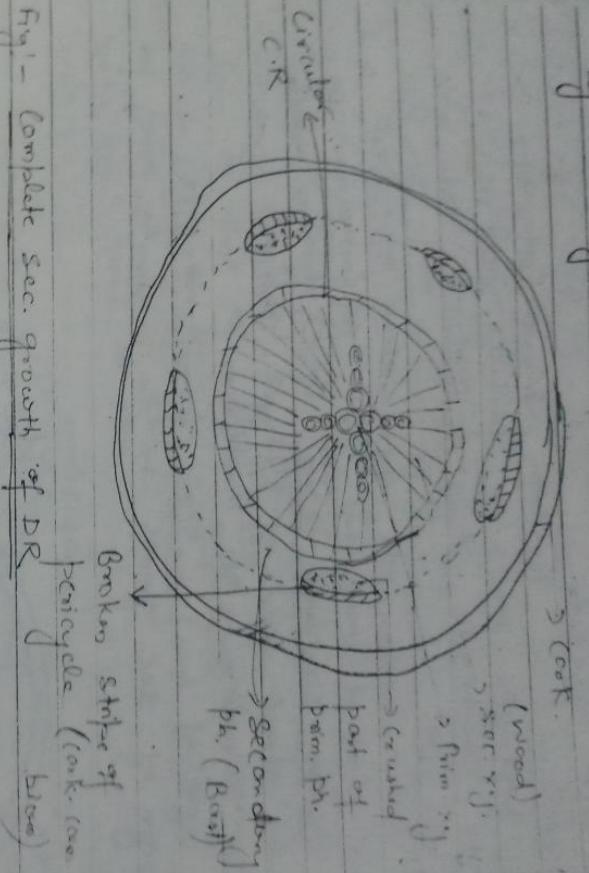 Circular
C.R
→ Cork.
(wood)
→ Sec. xy.
→ Prim xy
→ Crushed
part of
prim. ph.
→ Secondary
ph. (Bast)
Broken stripe of
pericycle (cork. cam
Fig:- Complete sec. growth of DR